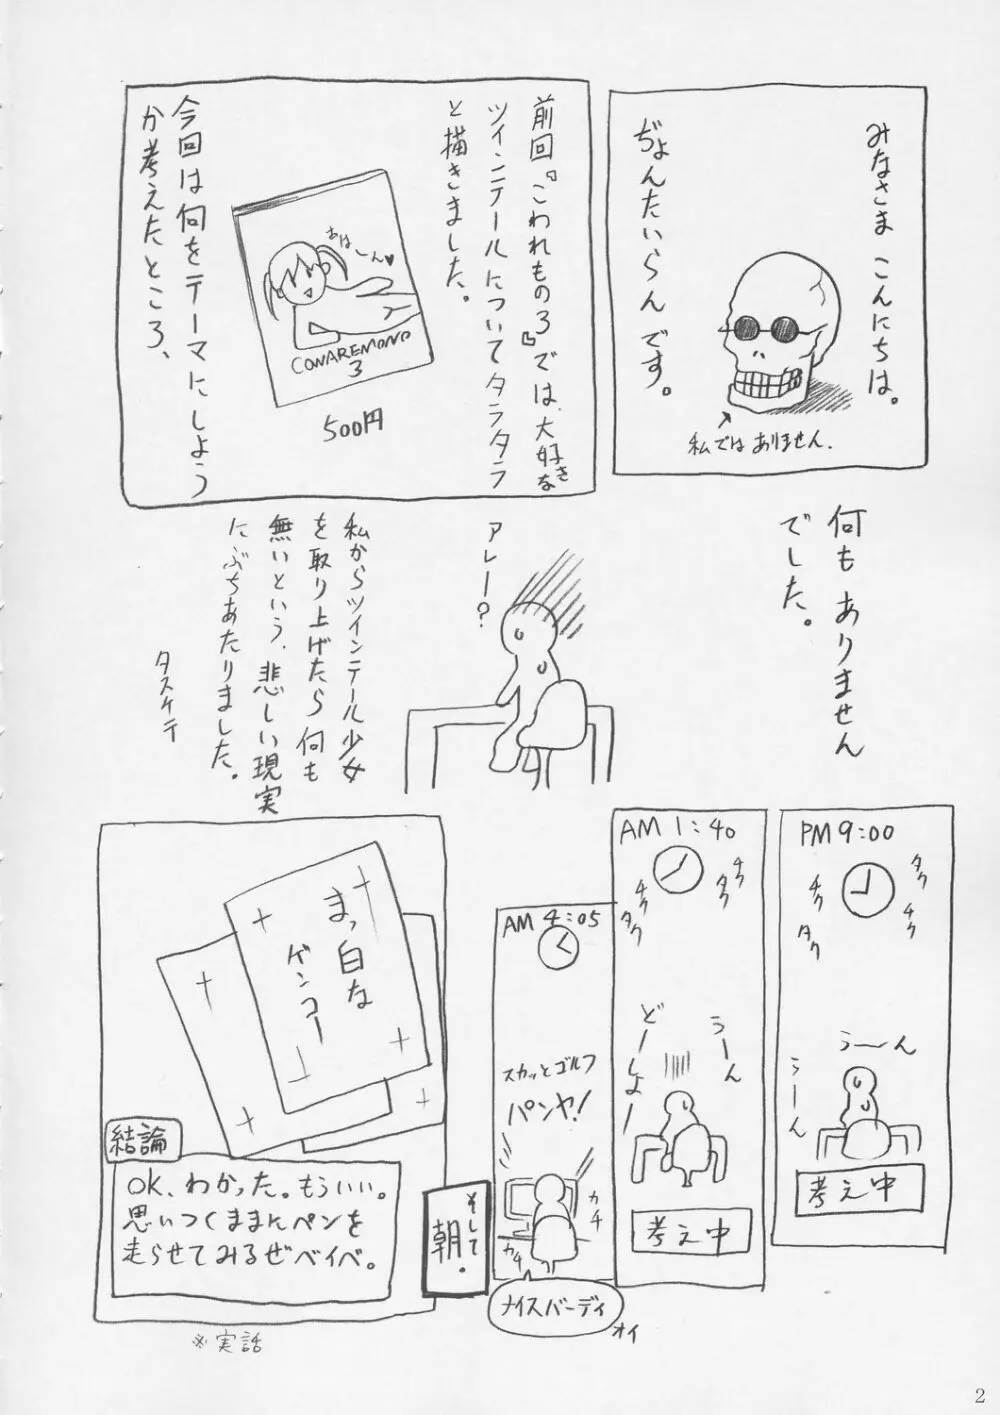 みなさま こんにちは。
ぢょんたいらんです。
私ではありません.
前回『こわれもの3』では、大好きな
ツインテールについてタラタラ
と描きました。
あはーん♥
CONAREMONO
3
500円
今回は何をテーマにしよう
か考えたところ、
何もありません
でした。
アレー?
私からツインテール少女
を取り上げたら何も
無いという、悲しい現実
にぶちあたりました。
タスケテ
PM 9:00
チク
タク
タク
チク
うーん
うーん
考え中
AM 1:40
チク
タク
チク
タク
うーん
どーしよー
考え中
AM 4:05
スカッとゴルフ
パンヤ!
カチ
カチ
ナイスバーディ
オイ
そして
朝.
まっ白な
ゲンコー
結論
OK、わかった。もういい。
思いつくままにペンを
走らせてみるぜベイベ。
※実話
2